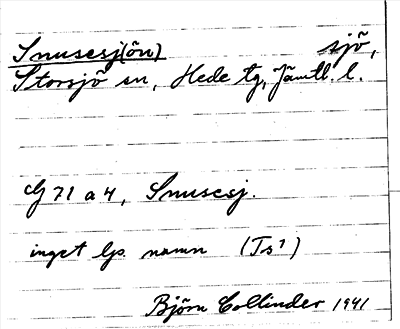 Snusesj(ön) sjö,
Storsjö sn, Hede tg, Jämtl. l.
G 71 a 4, Snusesj.
inget ljs. namn (Ts 1)
Björn Collinder 1941